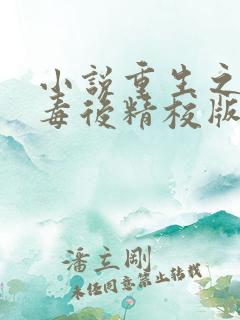 小說重生之
毒後精校版
潘立剛
未经同意禁止转载